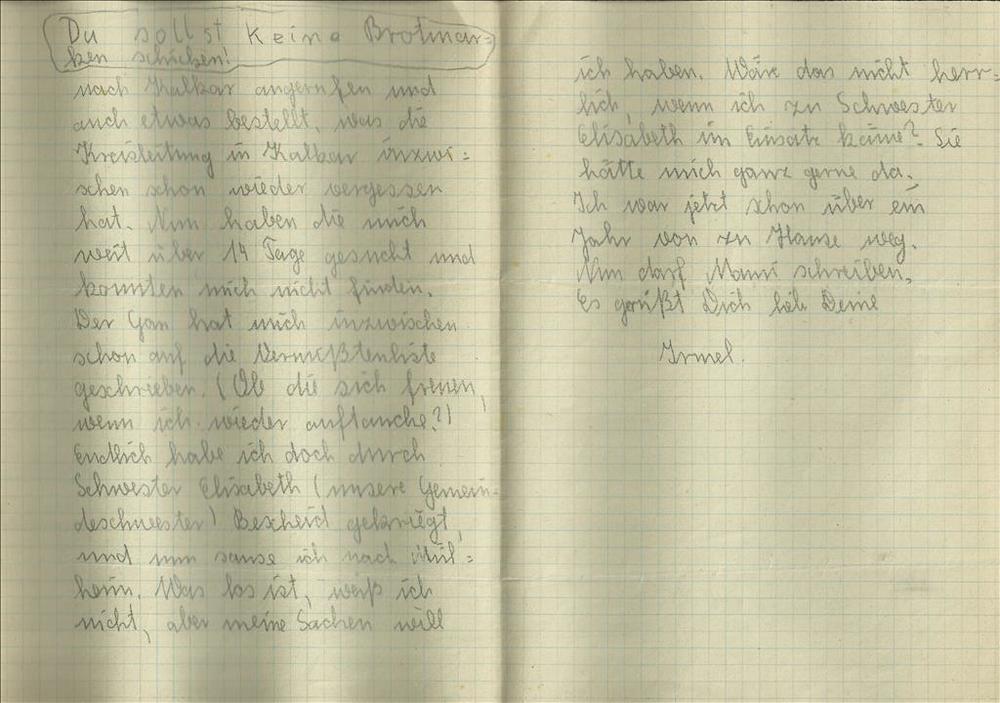 Du sollst keine Brotmar=
ken schicken!
nach Kalkar angerufen und
auch etwas bestellt, was die
Kreisleitung in Kalkar inzwi=
schen schon wieder vergessen
hat. Nun haben die mich
weit über 14 Tage gesucht und
konnten mich nicht finden.
Der Gau hat mich inzwischen
schon auf die Vermißtenliste
geschrieben. (Ob die sich freuen,
wenn ich wieder auftauche?)
Endlich habe ich doch durch
Schwester Elisabeth (unsere Gemein-
deschwester) Bescheid gekriegt,
und nun sause ich nach Mül=
heim. Was los ist, weiß ich
nicht, aber meine Sachen will
ich haben. Wäre das nicht herr=
lich, wenn ich zu Schwester
Elisabeth im Einsatz käme? Sie
hätte mich ganz gerne da.
Ich war jetzt schon über ein
Jahr von zu Hause weg.
Nun darf Manni schreiben.
Es grüßt Dich lieb Deine
Irmel.